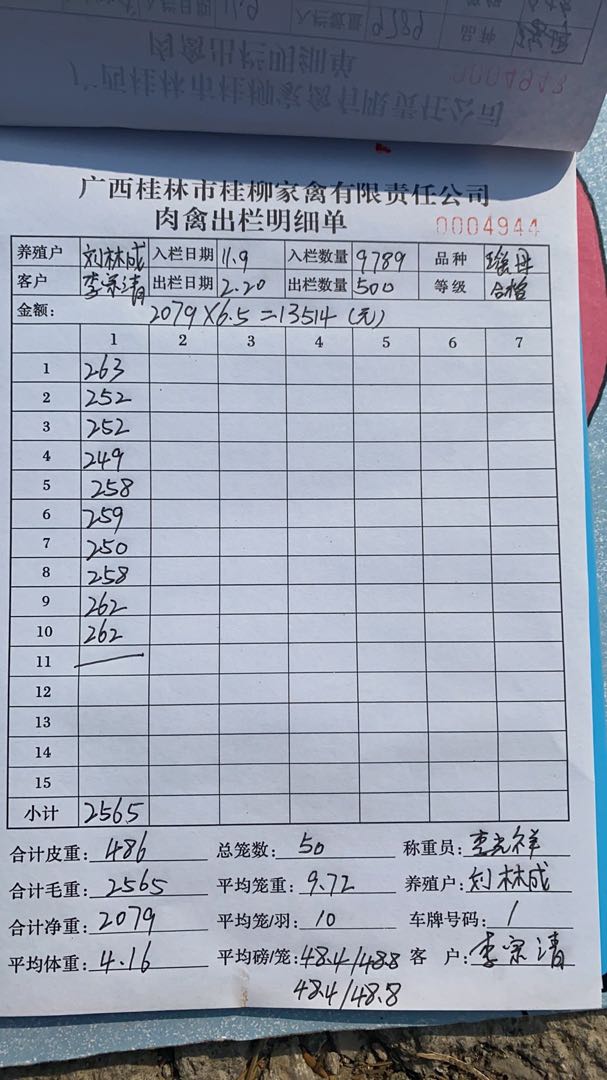 入栏日期 11.9 入栏数量 9789 品种
肉禽出栏明细单
广西桂林市桂柳家禽有限责任公司
0004943
广西桂林市桂柳家禽有限责任公司
肉禽出栏明细单
0004944
养殖户 刘林成 入栏日期 11.9 入栏数量 9789 品种
客户 李宗清 出栏日期 2.20 出栏数量 500 等级 合格
金额: 2079×6.5=13514(元)
1 2 3 4 5 6 7
1 263
2 252
3 252
4 249
5 258
6 259
7 250
8 258
9 262
10 262
11
12
13
14
15
小计 2565
合计皮重: 486 总笼数: 50 称重员: 李光祥
合计毛重: 2565 平均笼重: 9.72 养殖户: 刘林成
合计净重: 2079 平均笼/羽: 10 车牌号码: /
平均体重: 4.16 平均磅/笼: 48.4/48.8 客 户: 李宗清
48.4/48.8